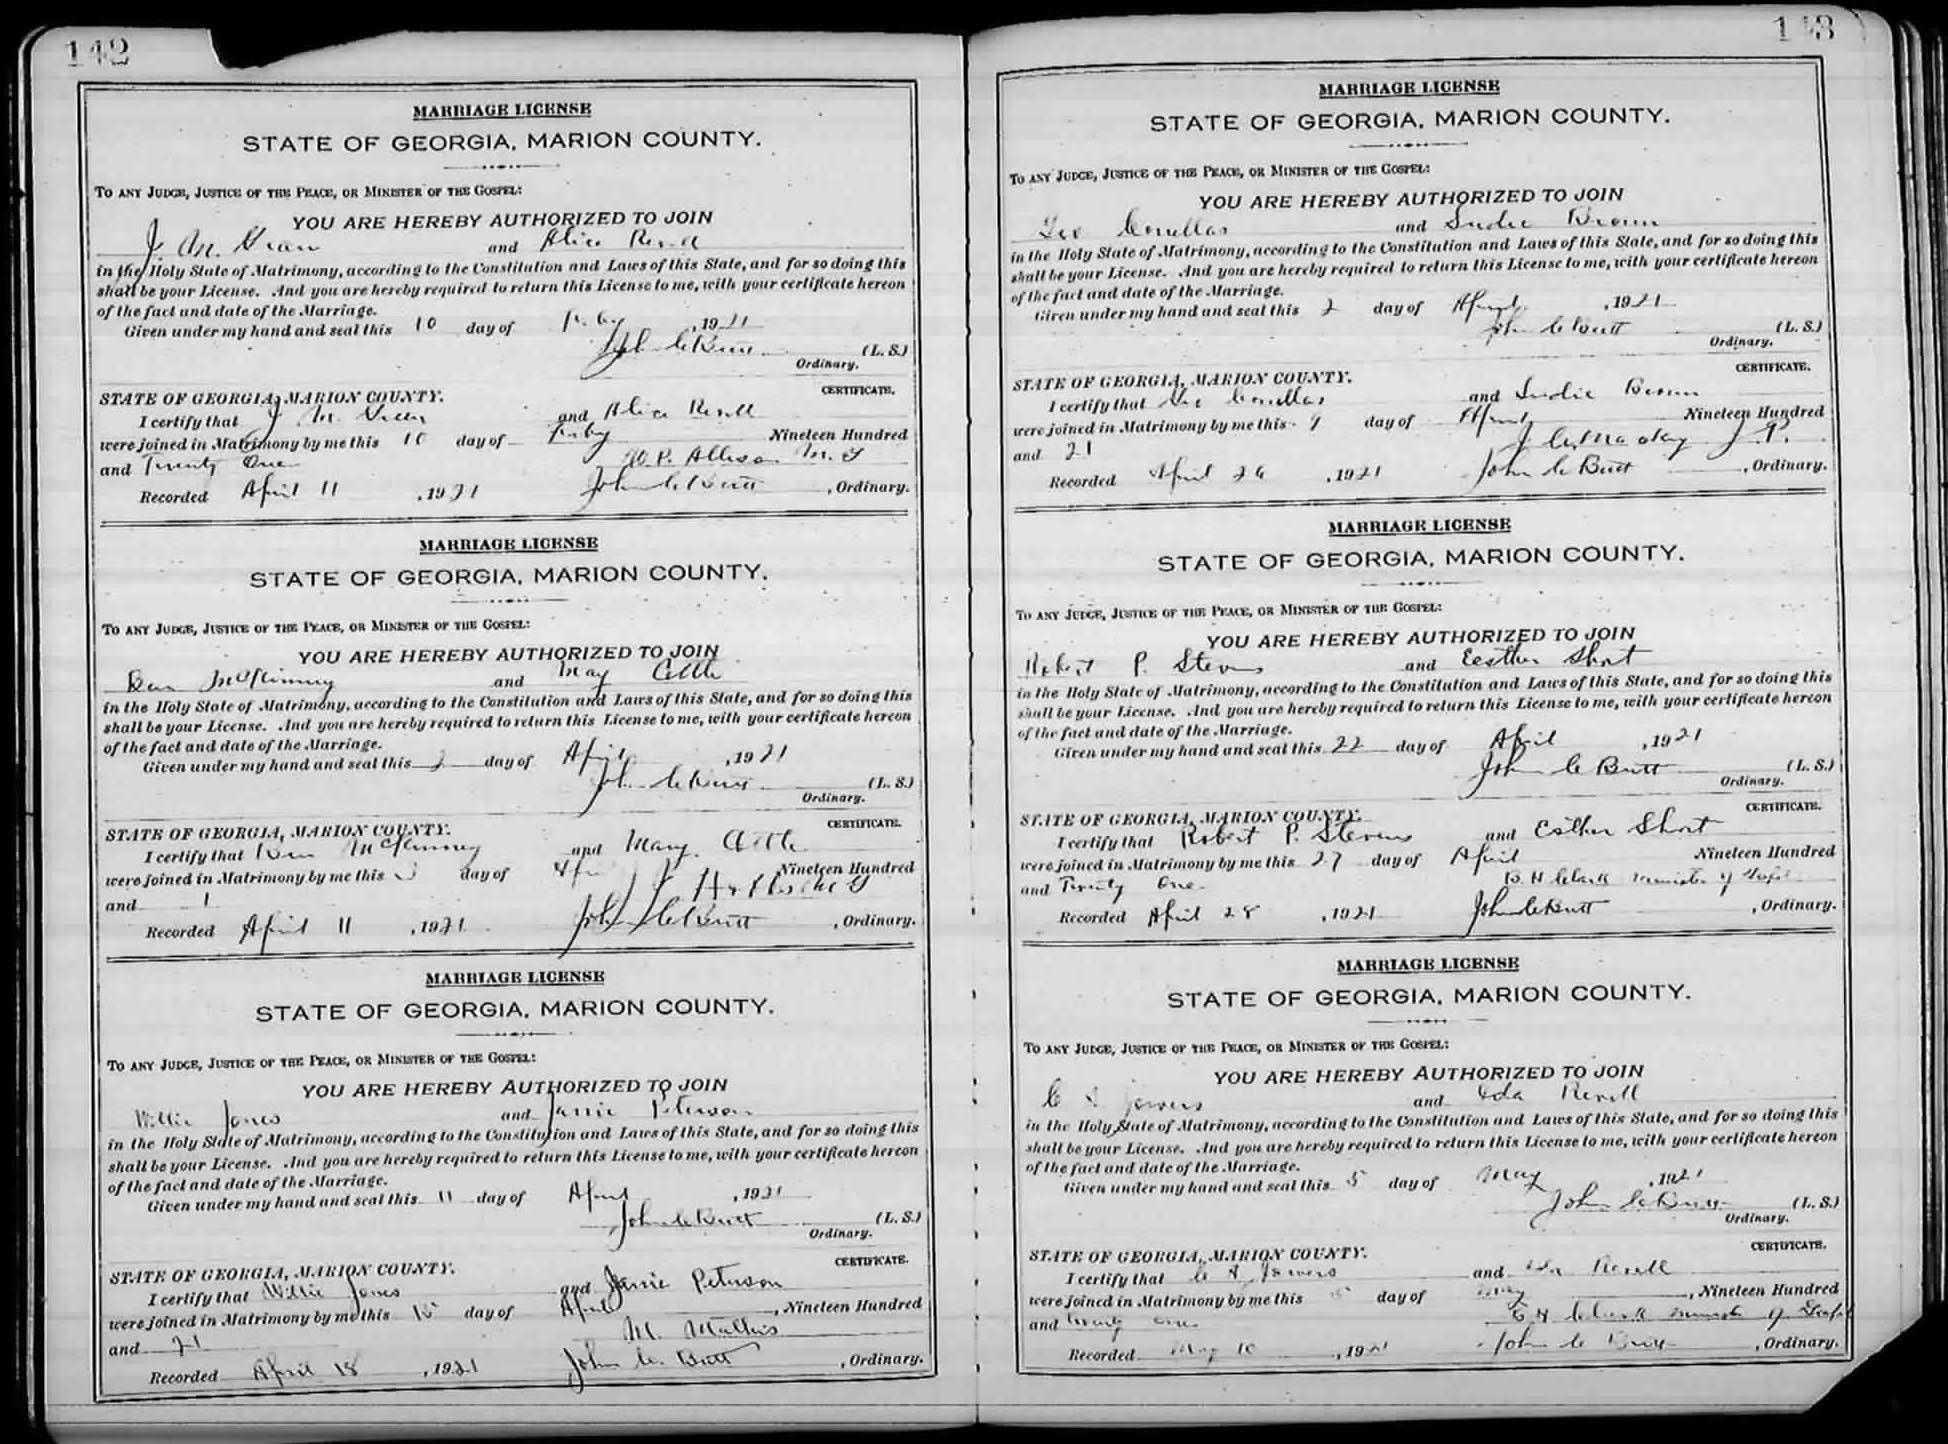 142
MARRIAGE LICENSE
STATE OF GEORGIA, MARION COUNTY.
TO ANY JUDGE, JUSTICE OF THE PEACE, OR MINISTER OF THE GOSPEL:
YOU ARE HEREBY AUTHORIZED TO JOIN
J. M. and Alice Revell
in the Holy State of Matrimony, according to the Constitution and Laws of this State, and for so doing this
shall be your License. And you are hereby required to return this License to me, with your certificate hereon
of the fact and date of the Marriage.
Given under my hand and seal this 10 day of Feby, 1921
John C Butt (L. S.)
Ordinary.
CERTIFICATE.
STATE OF GEORGIA, MARION COUNTY.
I certify that J M and Alice Revell
were joined in Matrimony by me this 10 day of Feby Nineteen Hundred
and Twenty One P. Allison M. G
Recorded April 11, 1921 John C Butt, Ordinary.
MARRIAGE LICENSE
STATE OF GEORGIA, MARION COUNTY.
TO ANY JUDGE, JUSTICE OF THE PEACE, OR MINISTER OF THE GOSPEL:
YOU ARE HEREBY AUTHORIZED TO JOIN
Ben McKinney and May Cottle
in the Holy State of Matrimony, according to the Constitution and Laws of this State, and for so doing this
shall be your License. And you are hereby required to return this License to me, with your certificate hereon
of the fact and date of the Marriage.
Given under my hand and seal this 2 day of April, 1921
John C Butt (L. S.)
Ordinary.
CERTIFICATE.
STATE OF GEORGIA, MARION COUNTY.
I certify that Ben McKinney and Mary Cottle
were joined in Matrimony by me this day of Nineteen Hundred
and 1
Recorded April 11, 1921. John C Butt, Ordinary.
MARRIAGE LICENSE
STATE OF GEORGIA, MARION COUNTY.
TO ANY JUDGE, JUSTICE OF THE PEACE, OR MINISTER OF THE GOSPEL:
YOU ARE HEREBY AUTHORIZED TO JOIN
Willie Jones and Janie Peterson
in the Holy State of Matrimony, according to the Constitution and Laws of this State, and for so doing this
shall be your License. And you are hereby required to return this License to me, with your certificate hereon
of the fact and date of the Marriage.
Given under my hand and seal this 11 day of April, 1921
John C Butt (L. S.)
Ordinary.
CERTIFICATE.
STATE OF GEORGIA, MARION COUNTY.
I certify that Willie Jones and Janie Peterson
were joined in Matrimony by me this 15 day of April, Nineteen Hundred
and 21 M. Mathis
Recorded April 18, 1921 John C. Butt, Ordinary.
143
MARRIAGE LICENSE
STATE OF GEORGIA, MARION COUNTY.
TO ANY JUDGE, JUSTICE OF THE PEACE, OR MINISTER OF THE GOSPEL:
YOU ARE HEREBY AUTHORIZED TO JOIN
Geo and Sudie Brown
in the Holy State of Matrimony, according to the Constitution and Laws of this State, and for so doing this
shall be your License. And you are hereby required to return this License to me, with your certificate hereon
of the fact and date of the Marriage.
Given under my hand and seal this 2 day of April, 1921
John C Butt (L. S.)
Ordinary.
CERTIFICATE.
STATE OF GEORGIA, MARION COUNTY.
I certify that Geo and Sudie Brown
were joined in Matrimony by me this 9 day of April Nineteen Hundred
and 21 J. P.
Recorded April 26, 1921 John C Butt, Ordinary.
MARRIAGE LICENSE
STATE OF GEORGIA, MARION COUNTY.
TO ANY JUDGE, JUSTICE OF THE PEACE, OR MINISTER OF THE GOSPEL:
YOU ARE HEREBY AUTHORIZED TO JOIN
Robert P. Stevens and Eesther Short
in the Holy State of Matrimony, according to the Constitution and Laws of this State, and for so doing this
shall be your License. And you are hereby required to return this License to me, with your certificate hereon
of the fact and date of the Marriage.
Given under my hand and seal this 22 day of April, 1921
John C Butt (L. S.)
Ordinary.
CERTIFICATE.
STATE OF GEORGIA, MARION COUNTY.
I certify that Robert P. Stevens and Esther Short
were joined in Matrimony by me this 27 day of April Nineteen Hundred
and Twenty One. H Clark minister of Gospel
Recorded April 28, 1921 John C Butt, Ordinary.
MARRIAGE LICENSE
STATE OF GEORGIA, MARION COUNTY.
TO ANY JUDGE, JUSTICE OF THE PEACE, OR MINISTER OF THE GOSPEL:
YOU ARE HEREBY AUTHORIZED TO JOIN
C A Jowers and Ida Revell
in the Holy State of Matrimony, according to the Constitution and Laws of this State, and for so doing this
shall be your License. And you are hereby required to return this License to me, with your certificate hereon
of the fact and date of the Marriage.
Given under my hand and seal this 5 day of May, 1921
John C Butt (L. S.)
Ordinary.
CERTIFICATE.
STATE OF GEORGIA, MARION COUNTY.
I certify that C A Jowers and Ida Revell
were joined in Matrimony by me this day of May, Nineteen Hundred
and twenty one H Clark minister of Gospel
Recorded May 10, 1921 John C Butt, Ordinary.